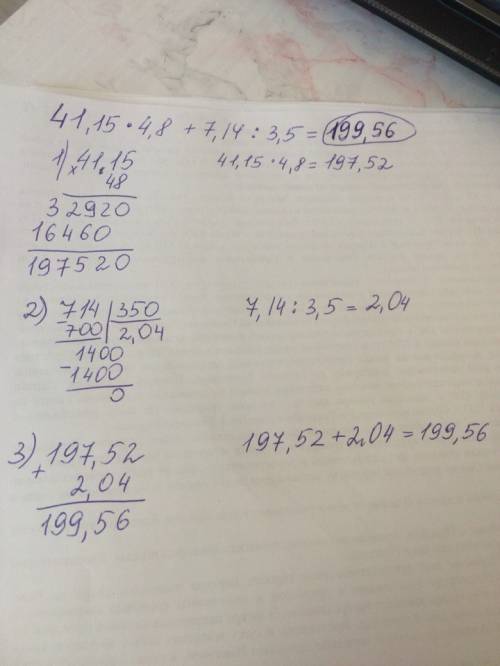 41,15 · 4,8 + 7,14 : 3,5 = 199,56
1) × 41,15     41,15 · 4,8 = 197,52
48
32920
16460
197520
2) 714 | 350     7,14 : 3,5 = 2,04
- 700 | 2,04
1400
- 1400
0
3) + 197,52     197,52 + 2,04 = 199,56
2,04
199,56